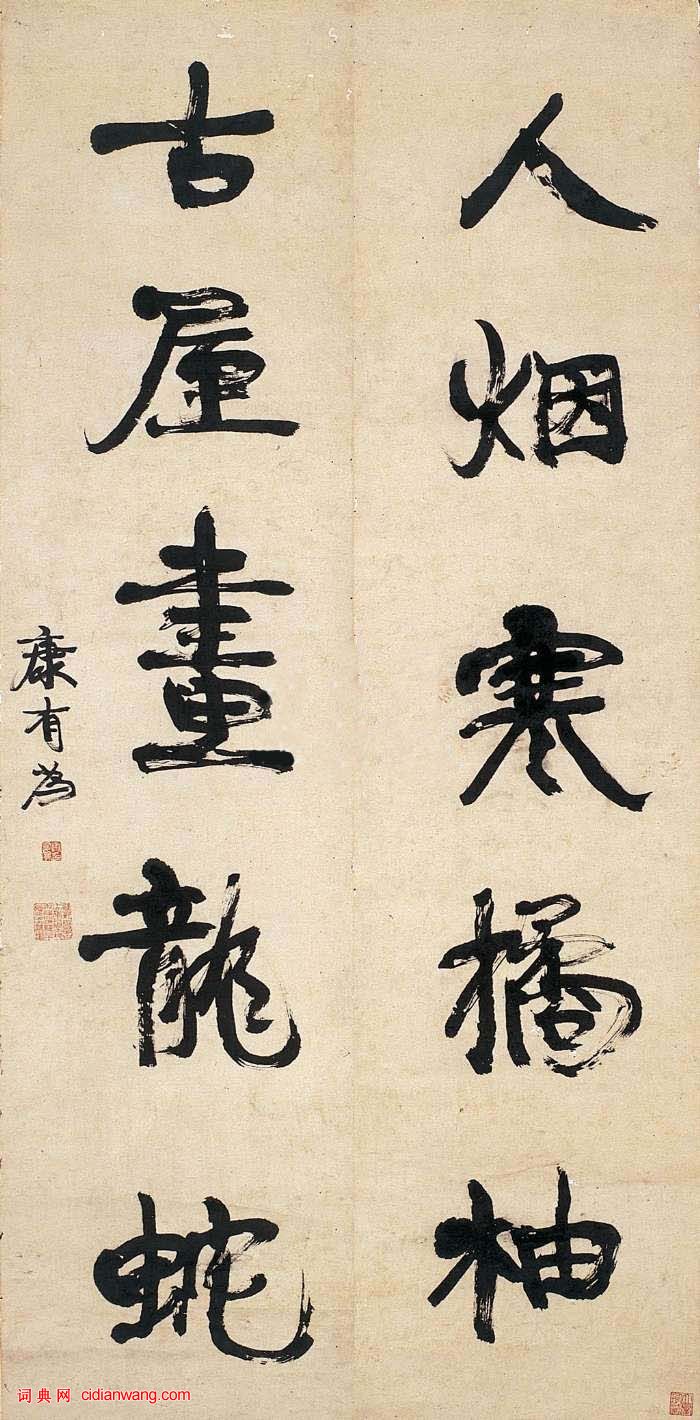 人烟寒橘柚
古屋畫龍蛇
康有為
词典网 cidianwang.com